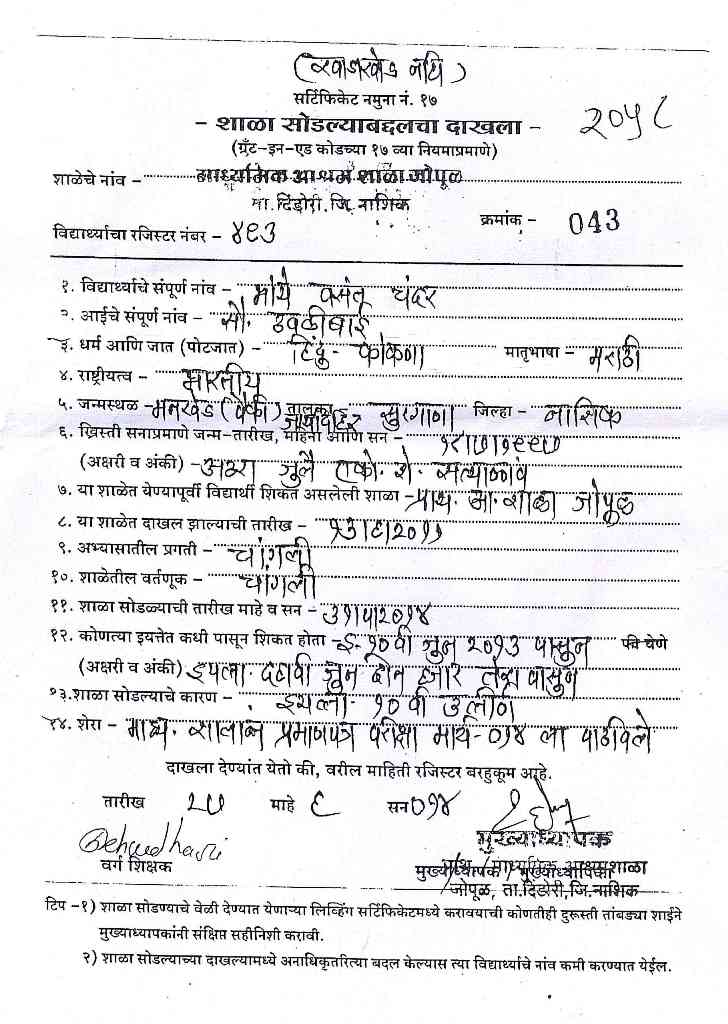 सर्टिफिकेट नमुना नं. १७
- शाळा सोडल्याबद्दलचा दाखला -
२०५८
(ग्रँट-इन-एड कोडच्या १७ व्या नियमाप्रमाणे)
शाळेचे नांव - माध्यमिक आश्रम शाळा जोपूळ
ता. दिंडोरी. जि. नाशिक
क्रमांक - 043
विद्यार्थ्याचा रजिस्टर नंबर - ४९३
१. विद्यार्थ्याचे संपूर्ण नांव - भोये वसंत चंदर
२. आईचे संपूर्ण नांव - सौ.
३. धर्म आणि जात (पोटजात) - हिंदु - कोकणा मातृभाषा - मराठी
४. राष्ट्रीयत्व - भारतीय
५. जन्मस्थळ - मनखेड (पैकी) तालुका सुरगाणा जिल्हा - नाशिक
६. ख्रिस्ती सनाप्रमाणे जन्म-तारीख, महिना आणि सन - १८।७।१९९७
(अक्षरी व अंकी) - अठरा जुलै एको. शे. सत्याण्णव
७. या शाळेत येण्यापूर्वी विद्यार्थी शिकत असलेली शाळा - प्राथ. आ. शाळा जोपूळ
८. या शाळेत दाखल झाल्याची तारीख - १३।६।२०११
९. अभ्यासातील प्रगती - चांगली
१०. शाळेतील वर्तणूक - चांगली
११. शाळा सोडळ्याची तारीख माहे व सन - ३१।५।२०१४
१२. कोणत्या इयत्तेत कधी पासून शिकत होता - इ. १०वी जुन २०१३ पासुन
(अक्षरी व अंकी) इयत्ता. दहावी जुन दोन हजार तेरा पासुन
१३.शाळा सोडल्याचे कारण - इयत्ता - १० वी उत्तीर्ण
१४. शेरा - माध्य. शालान्त प्रमाणपत्र परीक्षा मार्च-०१४ ला
दाखला देण्यांत येतो की, वरील माहिती रजिस्टर बरहुकूम आहे.
तारीख २७ माहे ६ सन ०१४
मुख्याध्यापक
वर्ग शिक्षक
मुख्याध्यापक / मुख्याध्यापिका
माध्यमिक आश्रमशाळा
जोपूळ, ता.दिंडोरी,जि.नाशिक
टिप -१) शाळा सोडण्याचे वेळी देण्यात येणाऱ्या लिव्हिंग सर्टिफिकेटमध्ये करावयाची कोणतीही दुरूस्ती तांबड्या शाईने
मुख्याध्यापकांनी संक्षिप्त सहीनिशी करावी.
२) शाळा सोडल्याच्या दाखल्यामध्ये अनाधिकृतरित्या बदल केल्यास त्या विद्यार्थ्याचे नांव कमी करण्यात येईल.